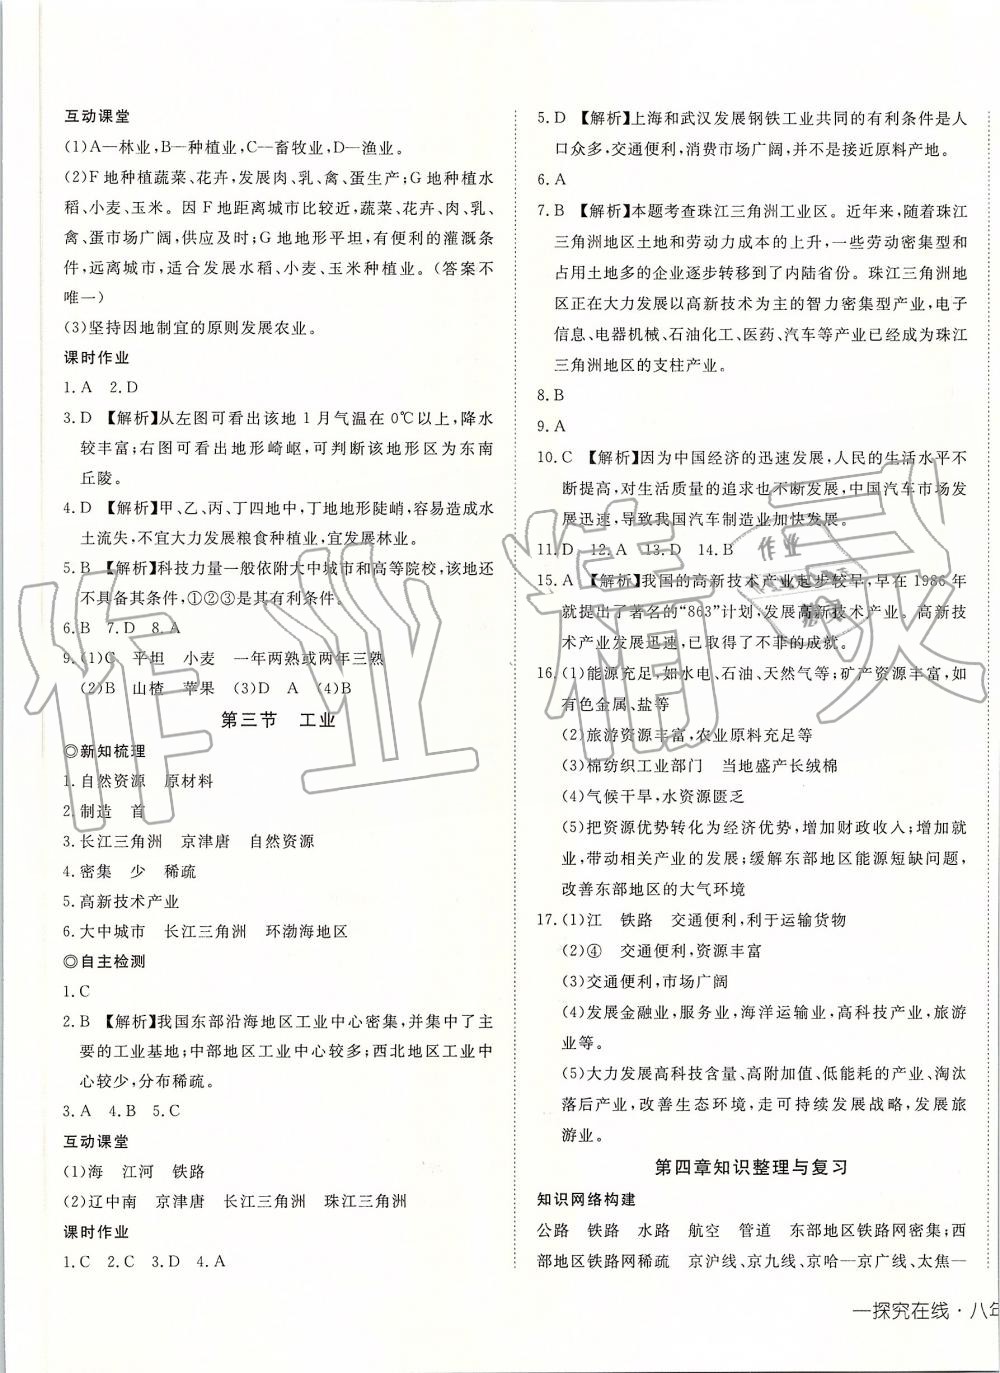 互动课堂
(1)A—林业,B—种植业,C—畜牧业,D—渔业。
(2)F地种植蔬菜、花卉,发展肉、乳、禽、蛋生产;G地种植水
稻、小麦、玉米。因F地距离城市比较近,蔬菜、花卉、肉、乳、
禽、蛋市场广阔,供应及时;G地地形平坦,有便利的灌溉条
件,远离城市,适合发展水稻、小麦、玉米种植业。(答案不
唯一)
(3)坚持因地制宜的原则发展农业。
课时作业
1. A 2. D
3. D 【解析】从左图可看出该地1月气温在0℃以上,降水
较丰富;右图可看出地形崎岖,可判断该地形区为东南
丘陵。
4. D 【解析】甲、乙、丙、丁四地中,丁地地形陡峭,容易造成水
土流失,不宜大力发展粮食种植业,宜发展林业。
5. B 【解析】科技力量一般依附大中城市和高等院校,该地还
不具备其条件,①②③是其有利条件。
6. B 7. D 8. A
9. (1)C 平坦 小麦 一年两熟或两年三熟
(2)B 山楂 苹果 (3)D A (4)B
第三节 工业
◎新知梳理
1. 自然资源 原材料
2. 制造 首
3. 长江三角洲 京津唐 自然资源
4. 密集 少 稀疏
5. 高新技术产业
6. 大中城市 长江三角洲 环渤海地区
◎自主检测
1. C
2. B 【解析】我国东部沿海地区工业中心密集,并集中了主
要的工业基地;中部地区工业中心较多;西北地区工业中
心较少,分布稀疏。
3. A 4. B 5. C
互动课堂
(1)海 江河 铁路
(2)辽中南 京津唐 长江三角洲 珠江三角洲
课时作业
1. C 2. C 3. D 4. A
5. D 【解析】上海和武汉发展钢铁工业共同的有利条件是人
口众多,交通便利,消费市场广阔,并不是接近原料产地。
6. A
7. B 【解析】本题考查珠江三角洲工业区。近年来,随着珠江
三角洲地区土地和劳动力成本的上升,一些劳动密集型和
占用土地多的企业逐步转移到了内陆省份。珠江三角洲地
区正在大力发展以高新技术为主的智力密集型产业,电子
信息、电器机械、石油化工、医药、汽车等产业已经成为珠江
三角洲地区的支柱产业。
8. B
9. A
10. C 【解析】因为中国经济的迅速发展,人民的生活水平不
断提高,对生活质量的追求也不断发展,中国汽车市场发
展迅速,导致我国汽车制造业加快发展。
11. D 12. A 13. D 14. B
15. A 【解析】我国的高新技术产业起步较早,早在1986年
就提出了著名的“863”计划,发展高新技术产业。高新技
术产业发展迅速,已取得了不菲的成就。
16. (1)能源充足,如水电、石油、天然气等;矿产资源丰富,如
有色金属、盐等
(2)旅游资源丰富,农业原料充足等
(3)棉纺织工业部门 当地盛产长绒棉
(4)气候干旱,水资源匮乏
(5)把资源优势转化为经济优势,增加财政收入;增加就
业,带动相关产业的发展;缓解东部地区能源短缺问题,
改善东部地区的大气环境
17. (1)江 铁路 交通便利,利于运输货物
(2)④ 交通便利,资源丰富
(3)交通便利,市场广阔
(4)发展金融业,服务业,海洋运输业,高科技产业,旅游
业等。
(5)大力发展高科技含量、高附加值、低能耗的产业、淘汰
落后产业,改善生态环境,走可持续发展战略,发展旅
游业。
第四章知识整理与复习
知识网络构建
公路 铁路 水路 航空 管道 东部地区铁路网密集;西
部地区铁路网稀疏 京沪线、京九线、京哈—京广线、太焦—
一探究在线·八年
作业精灵